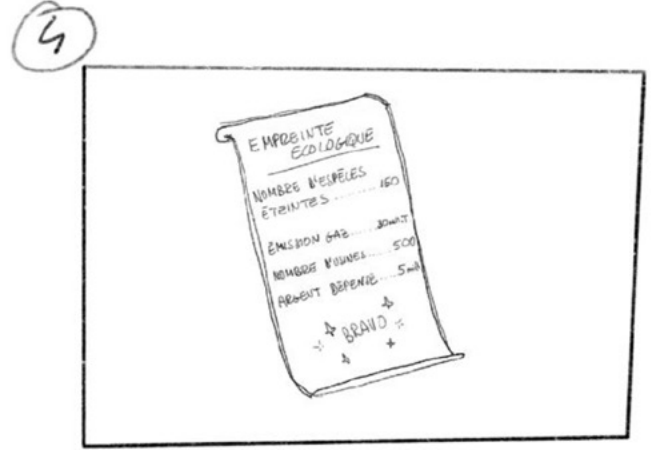 4
EMPREINTE
ECOLOGIQUE
NOMBRE D'ESPÈCES
ÉTEINTES ........ 150
ÉMISSION GAZ
NOMBRE D'USINES ..... 500
ARGENT DÉPENSÉ ..... 5
BRAVO